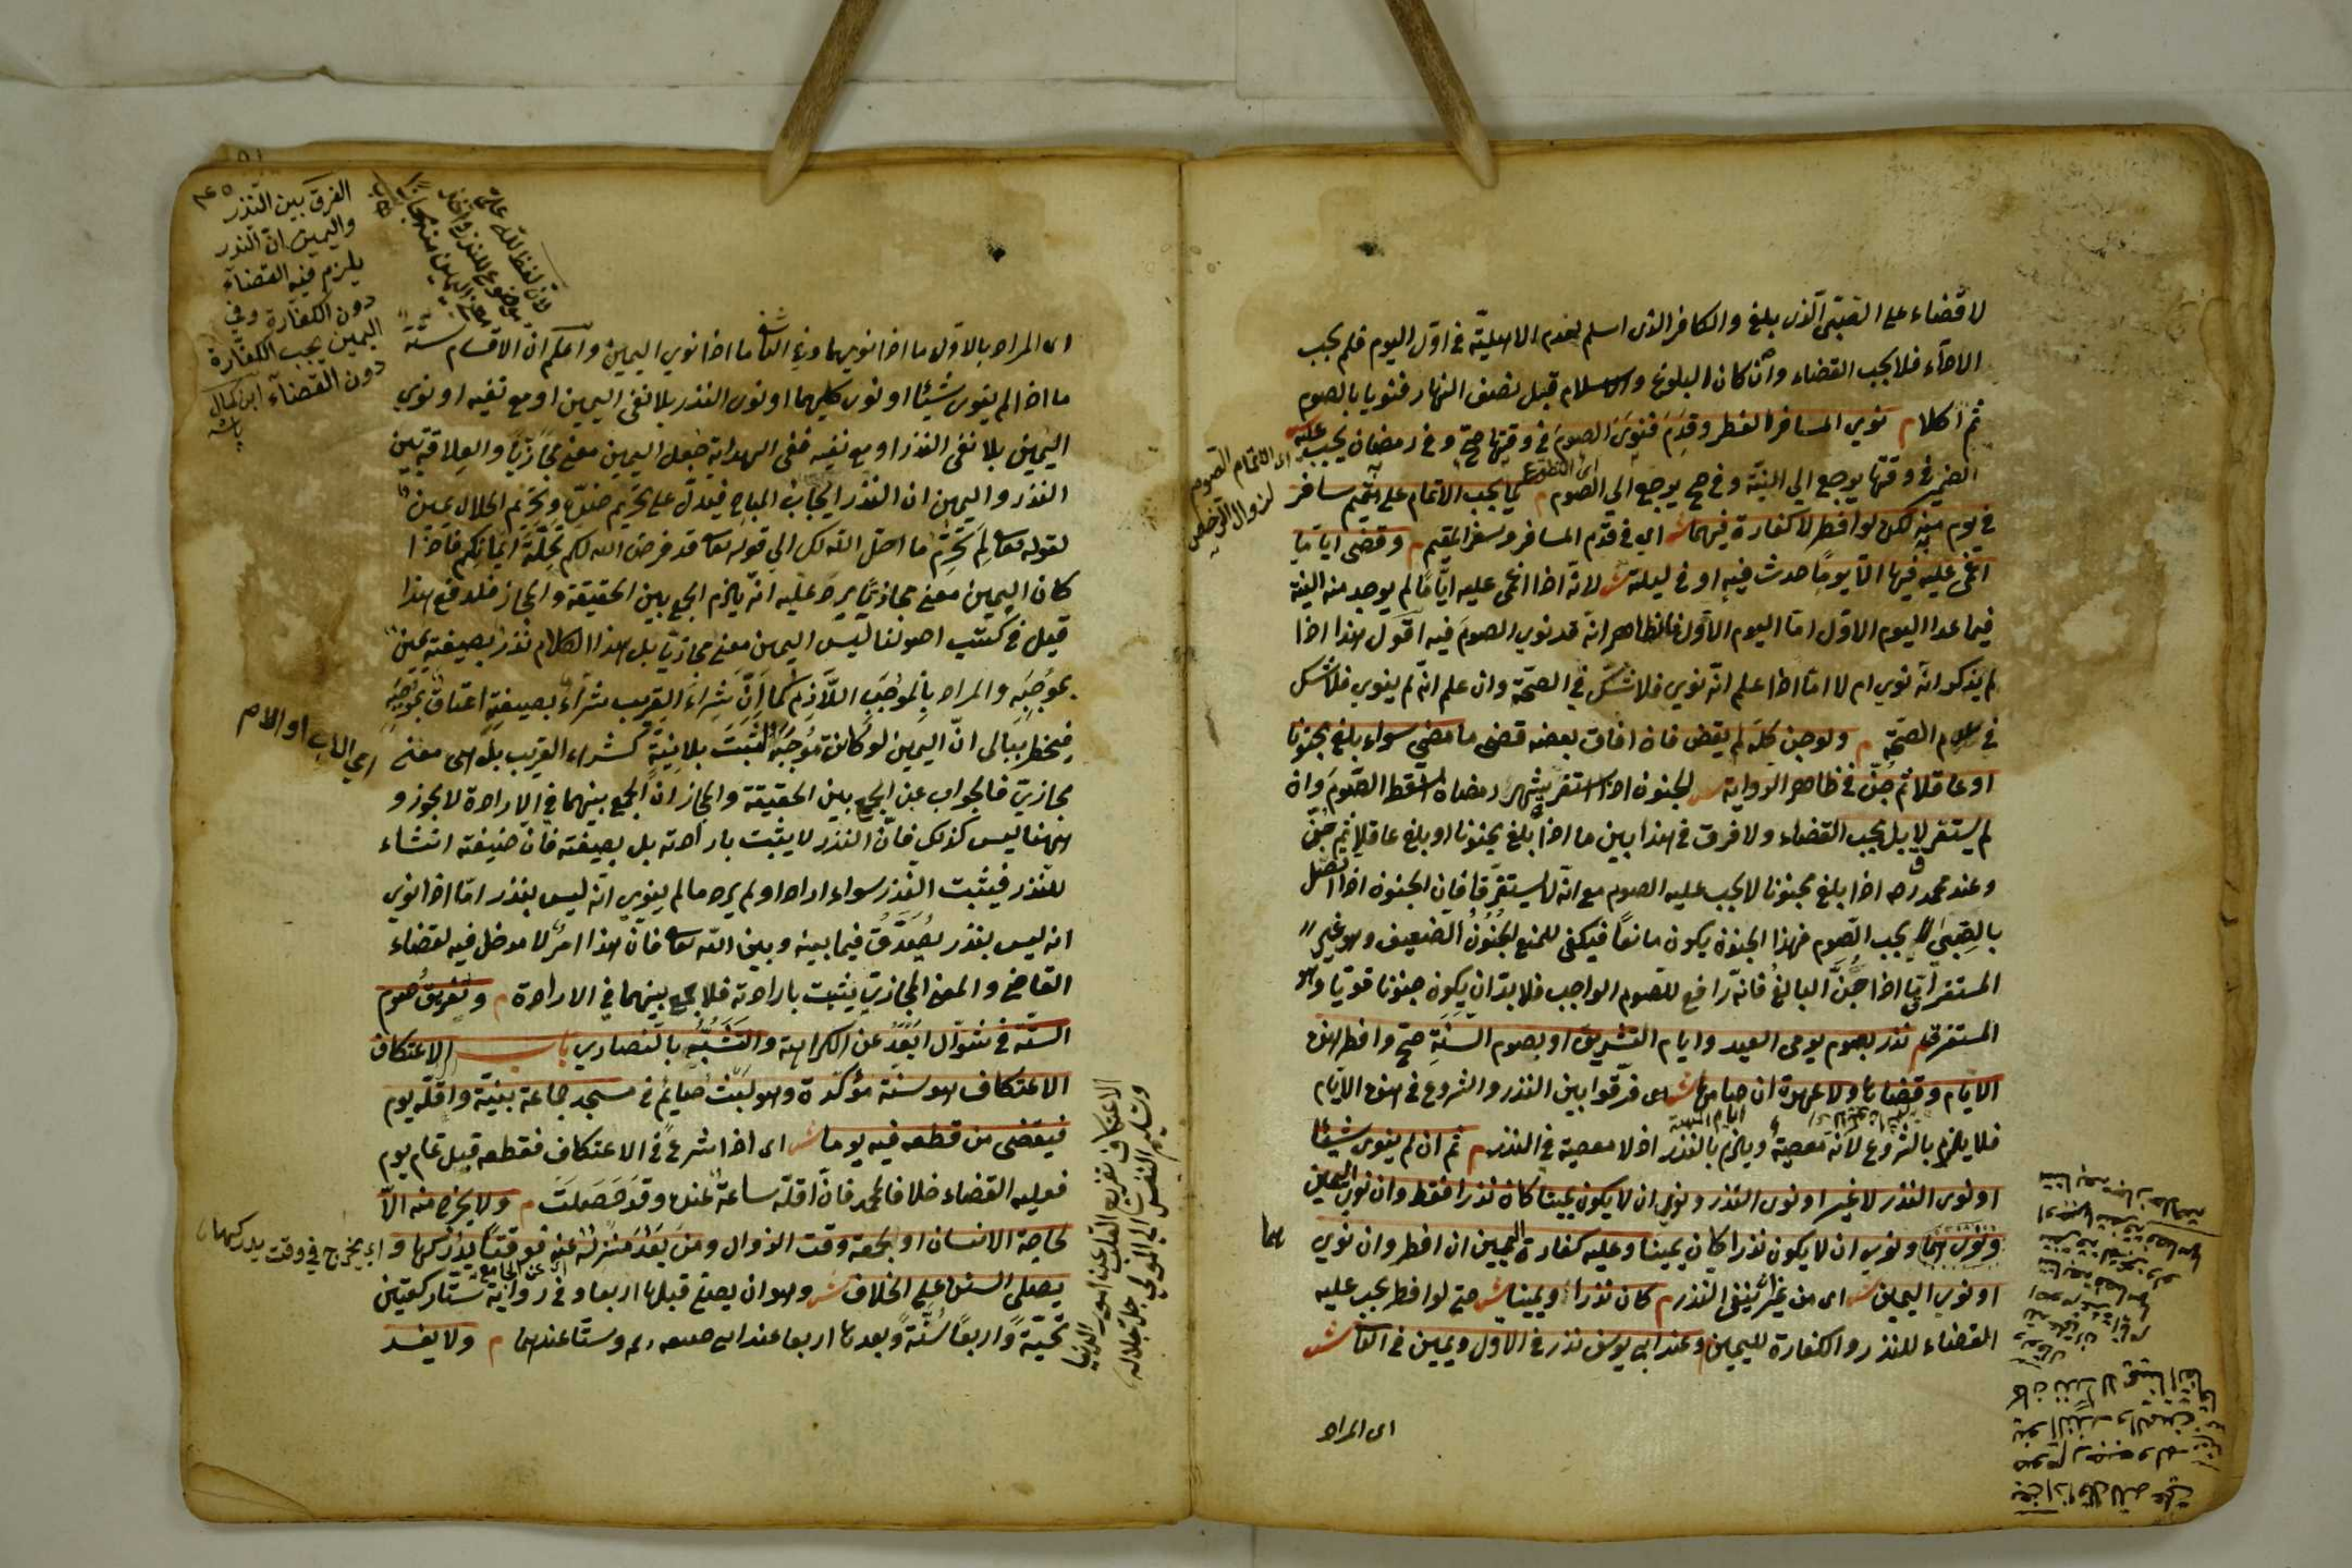 لا قضاء على الصبي الذى بلغ والكافر الذى اسلم لعدم الاهلية فى اول اليوم فلم يجب
الاداء فلا يجب القضاء وان كان البلوغ والاسلام قبل نصف النهار فنويا بالصوم
ثم اكلا م نوى المسافر الفطر وقدم فنوى الصوم فى وقتها صح وفى رمضان يجب عليه
الضمير فى وقتها يرجع الى النية وفى صح يرجع الى الصوم م كما يجب الاتمام على مقيم سافر
فى يوم منه لكن لو افطر لا كفارة فيهما ش اى فى قدم المسافر وسفر المقيم م وقضى اياما
اغمى عليه فيها الا يوما حدث فيه او فى ليلته ش لانه اذا اغمى عليه اياما لم يوجد منه النية
فيما عدا اليوم الاول اما اليوم الاول فالظاهر انه قد نوى الصوم فيه اقول هذا اذا
لم يذكر انه نوى ام لا اما اذا علم انه نوى فلا شك فى الصحة وان علم انه لم ينوى فلا شك
فى عدم الصحة م ولو جن كله لم يقض فان افاق بعضه قضى ما مضى سواء بلغ مجنونا
او عاقلا ثم جن فى ظاهر الرواية ش الجنون اذا استغرق شهر رمضان سقط الصوم وان
لم يستغرق لا بل يجب القضاء ولا فرق فى هذا بين ما اذا بلغ مجنونا او بلغ عاقلا ثم جن
وعند محمد رحه اذا بلغ مجنونا لا يجب عليه الصوم مع انه لا يستغرق فان الجنون اذا اتصل
بالصبى لا يجب الصوم فهذا الجنون يكون مانعا فيكفى للمنع الجنون الضعيف وهو غير
المستغرق اما اذا جن البالغ فانه رافع للصوم الواجب فلا بد ان يكون جنونا قويا وهو
المستغرق م نذر بصوم يومى العيد وايام التشريق او بصوم السنة صح وافطر هذه
الايام وقضاها ولا عهدة ان صامها ش اى فرقوا بين النذر والشروع فى هذه الايام
فلا يلزم بالشروع لانه معصية ويلزم بالنذر اذ لا معصية فى النذر م ثم ان لم ينوى شيئا
او نوى النذر لا غير او نوى النذر ونوى ان لا يكون يمينا كان نذرا فقط وان نوى اليمين
ونوى ان لا يكون نذرا كان يمينا وعليه كفارة اليمين ان افطر وان نوى هما
او نوى اليمين ش اى من غير ان ينفى النذر م كان نذرا ويمينا ش حتى لو افطر يجب عليه
القضاء للنذر والكفارة لليمين م وعند ابى يوسف نذر فى الاول ويمين فى الثانى ش
اى المراد
اى اتمام الصوم
لزوال الترخص
اى المراد بالاول ما اذا نويهما وفى الثانى ما اذا نوى اليمين واعلم ان الاقسام ستة
ما اذا لم ينوى شيئا او نوى كليهما او نوى النذر بلا نفى اليمين او مع نفيه او نوى
اليمين بلا نفى النذر او مع نفيه ففى الهداية جعل اليمين معنى مجازيا والعلاقة بين
النذر واليمين ان النذر ايجاب المباح فيدل على تحريم ضده وتحريم الحلال يمين
لقوله تعا لم تحرم ما احل الله لك الى قوله تعا قد فرض الله لكم تحلة ايمانكم فاذا
كان اليمين معنى مجازيا يرد عليه انه يلزم الجمع بين الحقيقة والمجاز فلدفع هذا
قيل فى كتب اصولنا ليس اليمين معنى مجازيا بل هذا الكلام نذر بصيغته يمين
بموجبه والمراد بالموجب اللازم كما ان شراء القريب شراء بصيغته اعتاق بموجبه
فيخطر ببالى ان اليمين لو كانت موجبه لثبت بلا نية كشراء القريب بل هى معنى
مجازى فالجواب عن الجمع بين الحقيقة والمجاز ان الجمع بينهما فى الارادة لا يجوز و
ههنا ليس كذلك فان النذر لا يثبت بارادته بل بصيغته فان صيغته انشاء
للنذر فيثبت النذر سواء اراد او لم يرد ما لم ينوى انه ليس بنذر اما اذا نوى
انه ليس بنذر يصدق فيما بينه وبين الله تعا فان هذا امر لا مدخل فيه لقضاء
القاضى والمعنى المجازى يثبت بارادته فلا جمع بينهما فى الارادة م وتفريق صوم
الستة فى شوال ابعد عن الكراهة والتشبه بالنصارى باب الاعتكاف
الاعتكاف هو سنة مؤكدة وهو لبث صائم فى مسجد جماعة بنية واقله يوم
فيقضى من قطعه فيه يوما ش اى اذا شرع فى الاعتكاف فقطعه قبل تمام يوم
فعليه القضاء خلافا لمحمد فان اقله ساعة عنده وقد حصلت م ولا يخرج منه الا
لحاجة الانسان او لجمعة وقت الزوال ومن بعد منزله عنه فوقتا يدركها و
يصلى السنن على الخلاف ش وهو ان يصلى قبلها اربعا وفى رواية ستا ركعتين
تحية واربعا سنة وبعدها اربعا عند ابى حنيفه رح وستا عندهما م ولا يفسد
الفرق بين النذر
واليمين ان النذر
يلزم فيه القضاء
دون الكفارة وفى
اليمين يجب الكفارة
دون القضاء ابن كمال
باشا
اى الاب او الام
اى يخرج فى وقت يدركها
الاعتكاف تفريغ القلب عن امور الدنيا
وتسليم النفس الى المولى جل جلاله